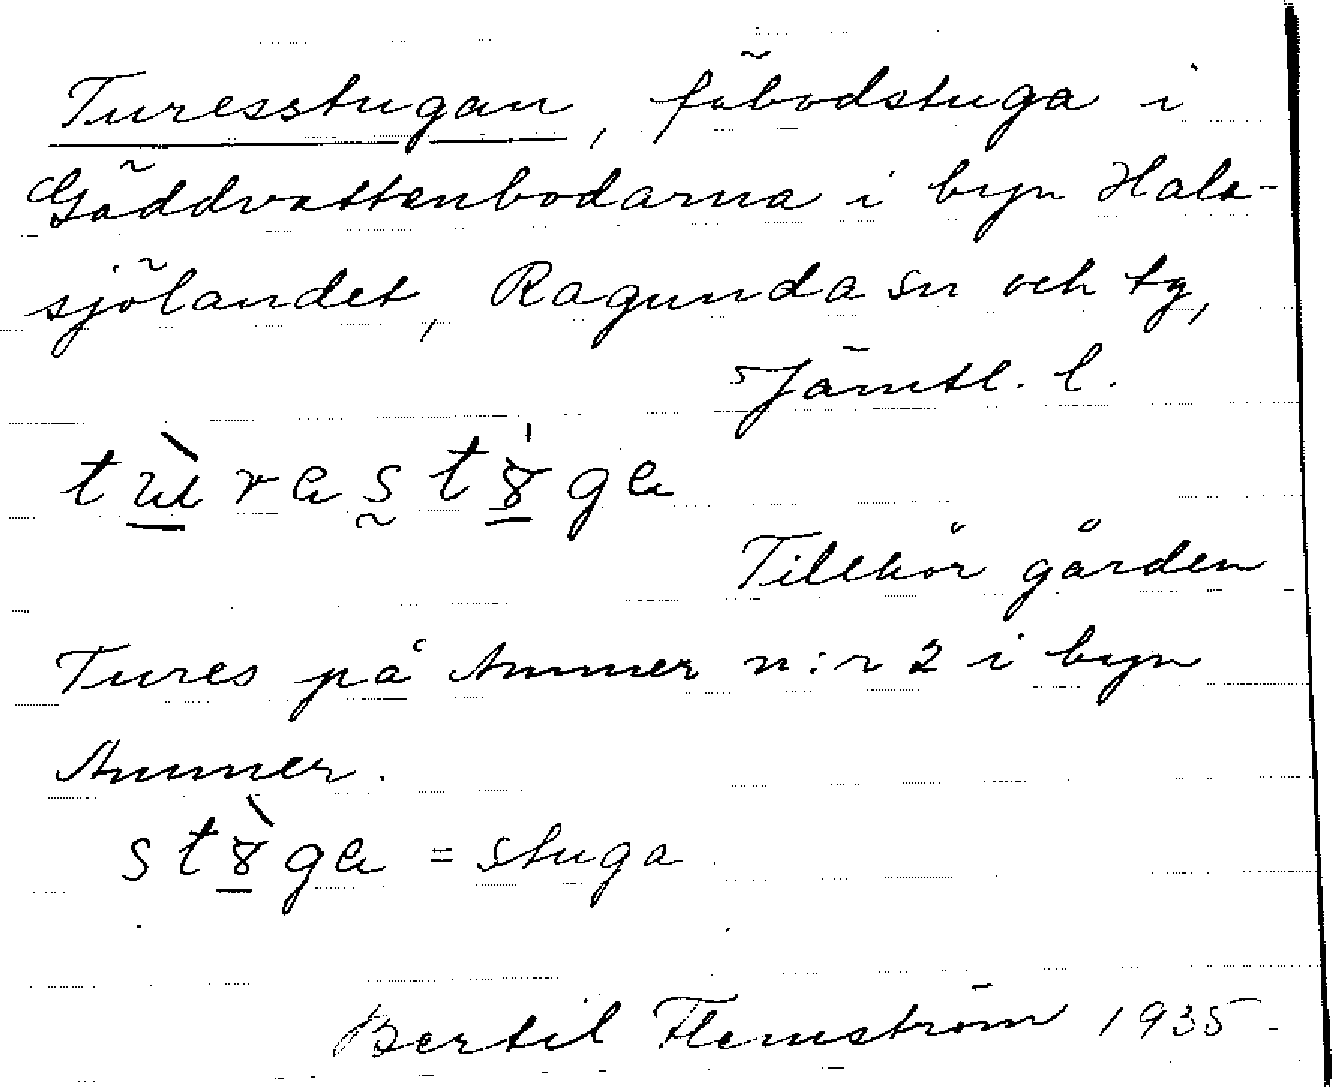 Turesstugan, fäbodstuga i
Gäddvattenbodarna i byn Hals-
sjölandet, Ragunda sn och tg,
Jämtl. l.
Tillhör gården
Tures på Ammer n:r 2 i byn
Ammer.
= stuga
Bertil Flemström 1935